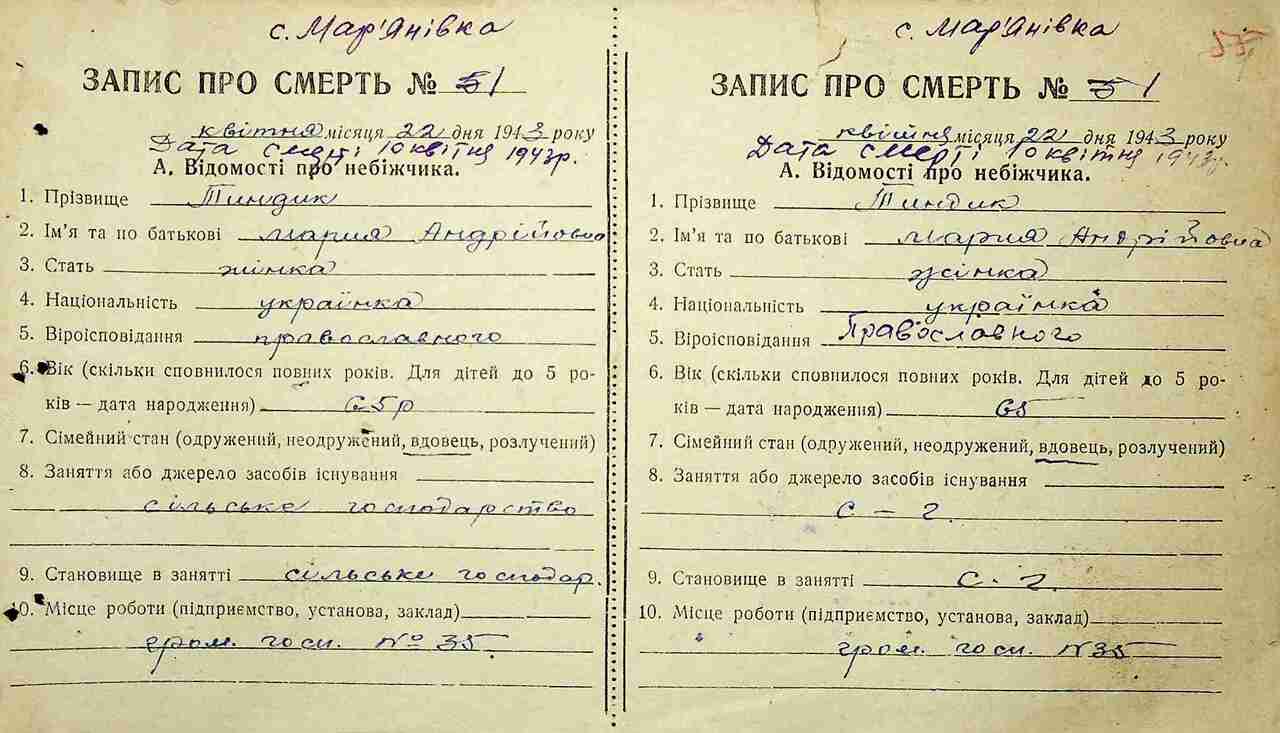 с. Мар'янівка
ЗАПИС ПРО СМЕРТЬ № 51
квітня місяця 22 дня 1943 року
Дата смерті 10 квітня 1943р.
А. Відомості про небіжчика.
1. Прізвище Тиндик
2. Ім'я та по батькові Мария Андрійовна
3. Стать жінка
4. Національність українка
5. Віроісповідання православного
6. Вік (скільки сповнилося повних років. Для дітей до 5 ро-
ків — дата народження) 65р
7. Сімейний стан (одружений, неодружений, вдовець, розлучений)
8. Заняття або джерело засобів існування
сільське господарство
9. Становище в занятті сільське господар.
10. Місце роботи (підприємство, установа, заклад)
гром. госп. № 35
с. Мар'янівка
ЗАПИС ПРО СМЕРТЬ № 51
квітня місяця 22 дня 1943 року
Дата смерті 10 квітня 1943р.
А. Відомості про небіжчика.
1. Прізвище Тиндик
2. Ім'я та по батькові Мария Андрійовна
3. Стать жінка
4. Національність українка
5. Віроісповідання Православного
6. Вік (скільки сповнилося повних років. Для дітей до 5 ро-
ків — дата народження) 65
7. Сімейний стан (одружений, неодружений, вдовець, розлучений)
8. Заняття або джерело засобів існування
с - г.
9. Становище в занятті с. - г.
10. Місце роботи (підприємство, установа, заклад)
гром. госп. N 35